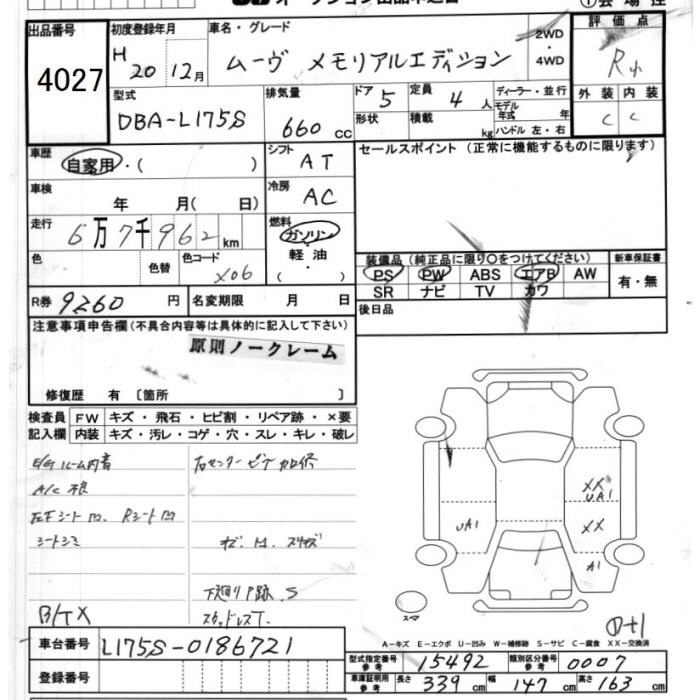 出品番号 4027
初度登録年月 H 20 12月
車名・グレード ムーヴ メモリアルエディション
2WD ・ 4WD
評価点 R
外装 C 内装 C
型式 DBA-L175S
排気量 660 cc
ドア 5 形状
定員 4 人 積載 kg
ディーラー・並行
モデル年式 年
ハンドル 左・右
車歴 自家用・( )
車検 年 月( 日)
走行 6万7千962km
色 色替 色コード X06
シフト AT
冷房 AC
燃料 ガソリン・軽油・( )
セールスポイント (正常に機能するものに限ります)
装備品 (純正品に限り○をつけてください) 新車保証書
PS PW ABS エアB AW 有・無
SR ナビ TV カワ
R券 9260 円 名変期限 月 日
後日品
注意事項申告欄(不具合内容等は具体的に記入して下さい)
原則ノークレーム
修復歴 有 〔箇所 〕
検査員 FW キズ・飛石・ヒビ割・リペア跡・×要
記入欄 内装 キズ・汚レ・コゲ・穴・スレ・キレ・破レ
E/Gルーム内
A/C 不良
シート凹 Rシート凹
シートシミ
下廻リP跡 S
スタッドレスT.
B/TX
XX
UA1
UA1 XX
A1
スペア
A-キズ E-エクボ U-凹み W-補修跡 S-サビ C-腐食 XX-交換済
車台番号 L175S-0186721
登録番号
型式指定番号 参考 15492 類別区分番号 参考 0007
車庫証明用 参考 長さ 339 cm 幅 147 cm 高さ 163 cm